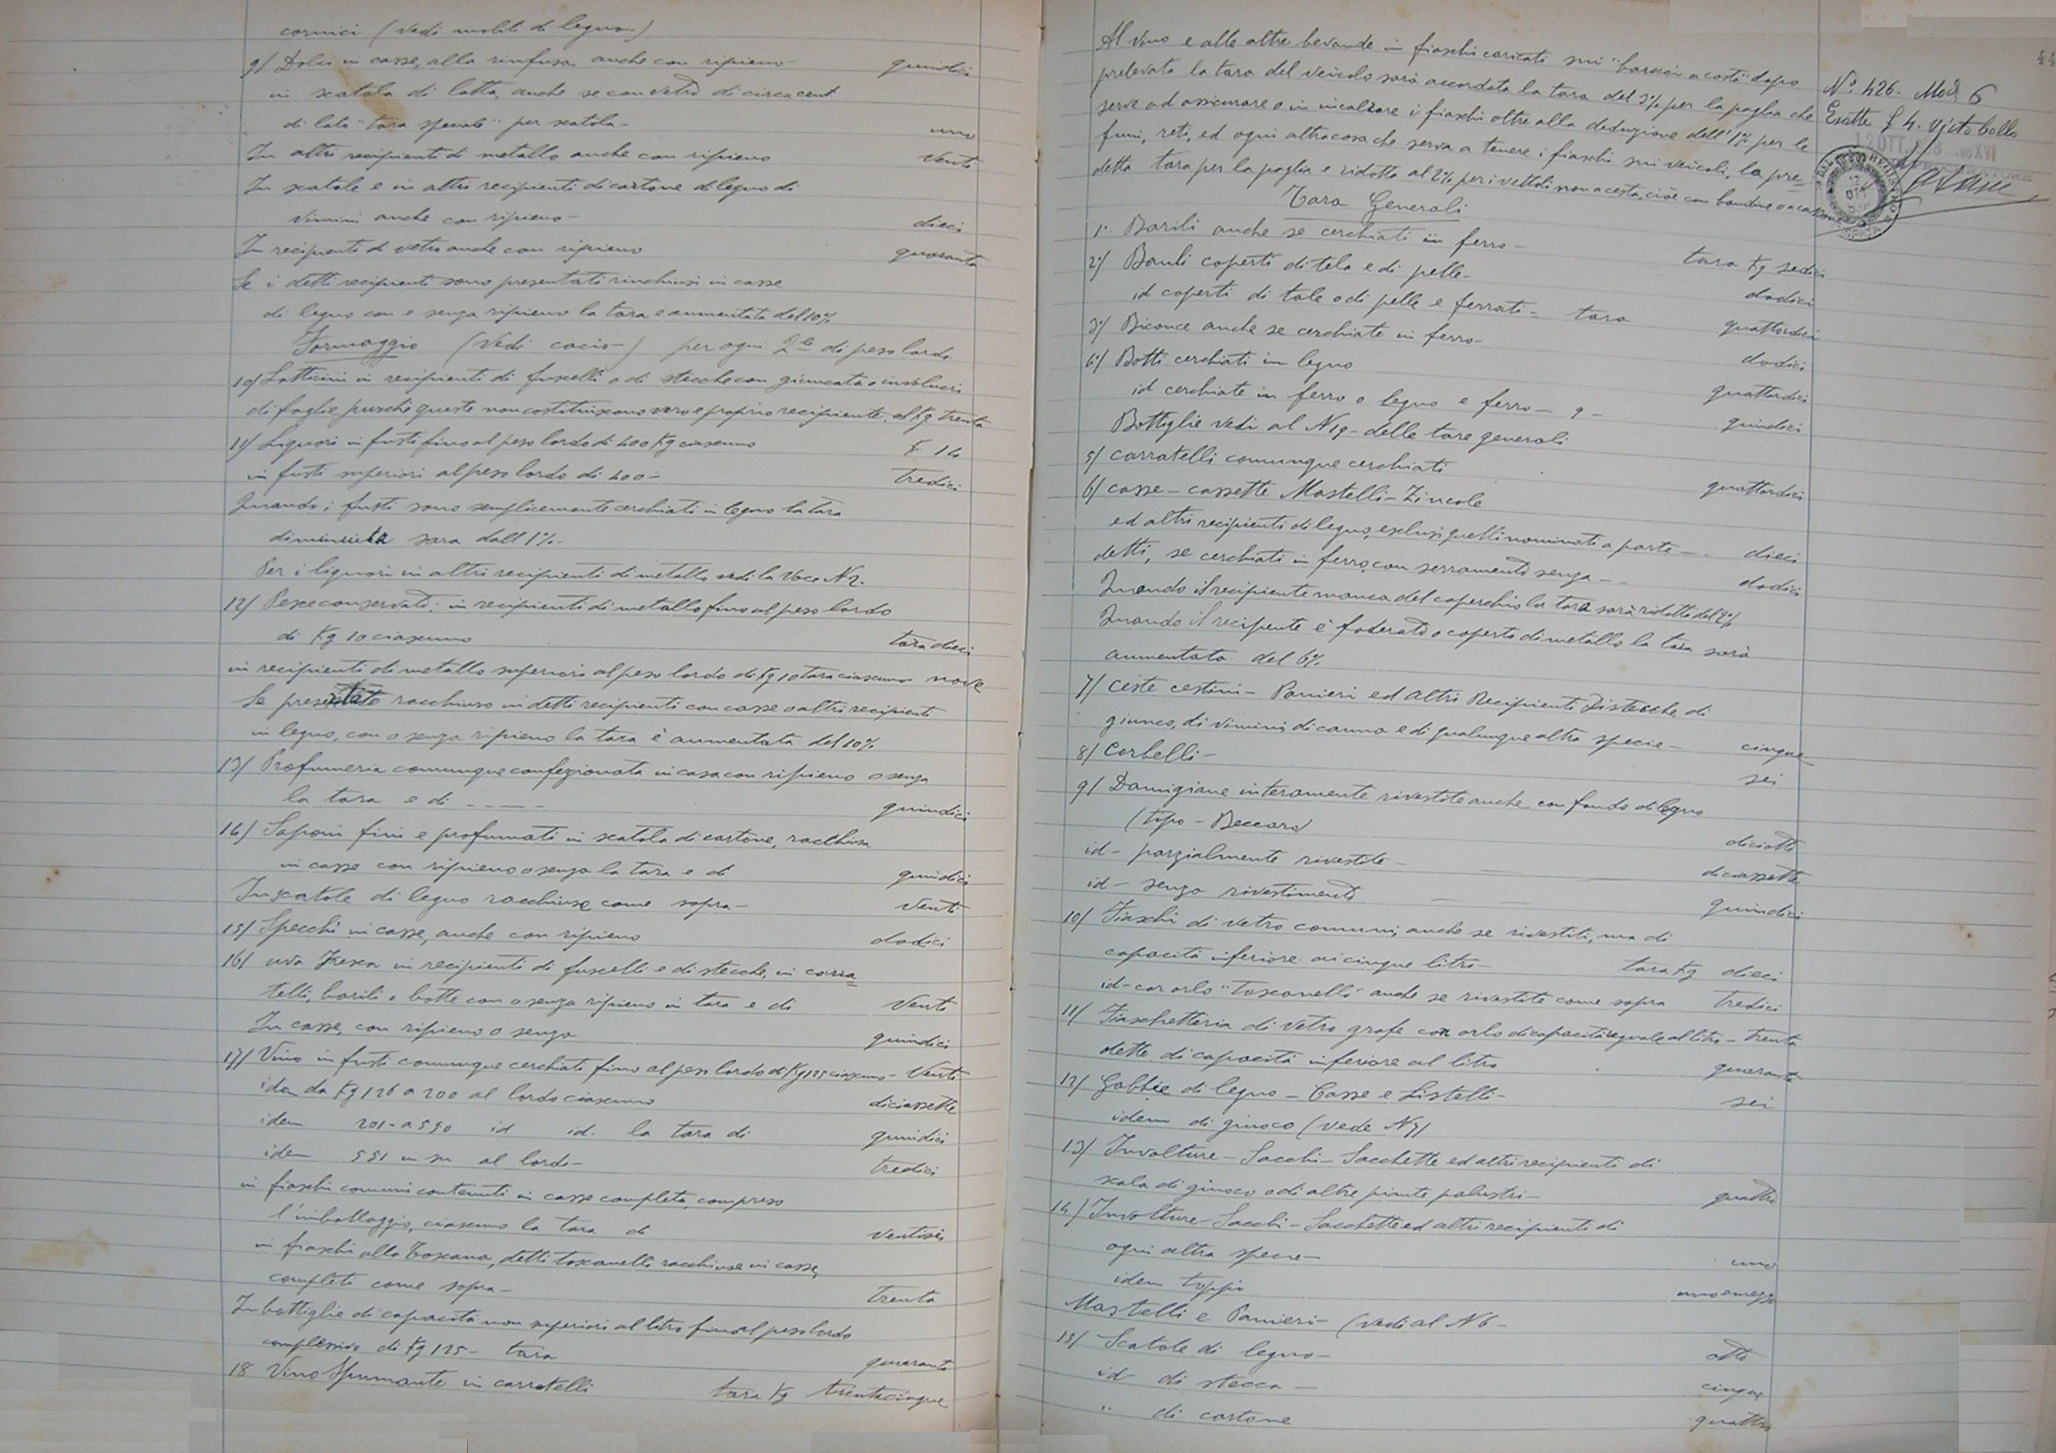 cornici (vedi mobili di legno)
9/ Dolci in casse, alla rinfusa anche con ripieno quindici
in scatola di latta, anche se con vetro di circa cent
di lato "tara speciale" per scatola uno
In altri recipienti di metallo anche con ripieno Venti
In scatole e in altri recipienti di cartone di legno di
vimini anche con ripieno dieci
In recipienti di vetro anche con ripieno quaranta
Se i detti recipienti sono presentati rinchiusi in casse
di legno con e senza ripieno la tara e aumentata del 10%
Formaggio (Vedi cacio) per ogni Q.le di peso lordo
10/ Latticini in recipienti di fuscelli o di stecche con giuncata o involucri
di foglie purchè queste non costituiscono vero e proprio recipiente. al Kg trenta
11/ Liquori in fusti fino al peso lordo di 400 Kg ciascuno 14
in fusti superiori al peso lordo di 400 - tredici
Quando i fusti sono semplicemente cerchiati in legno la tara
diminuita sara dall 1% -
Per i liquori in altri recipienti di metallo vedi la Voce N 2.
12/ Pesce conservato: in recipienti di metallo fino al peso lordo
di Kg 10 ciascuno tara dieci
in recipienti di metallo superiori al peso lordo di Kg 10 tara ciascuno nove
Se presentate racchiuso in detti recipienti con casse o altri recipienti
in legno, con o senza ripieno la tara è aumentata del 10%
13/ Profumeria comunque confezionata in casa con ripieno o senza
la tara e di - - - - quindici
14/ Saponi fini e profumati in scatola di cartone, racchiusa
in casse con ripieno o senza la tara e di quindici
In scatole di legno racchiuse come sopra - Venti
15/ Specchi in casse, anche con ripieno dodici
16/ uva fresca in recipienti di fuscelli e di stecche, in carra=
telli, barili o botte con o senza ripieno in tara e di Venti
In casse, con ripieno o senza quindici
17/ Vino in fusti comunque cerchiati fino al peso lordo di Kg 125 ciascuno - Venti
idem da Kg 126 a 200 al lordo ciascuno diciassette
idem 201 - a 550 id id. la tara di quindici
idem 551 in su al lordo - tredici
in fiaschi comuni contenuti in casse completa, compreso
l'imballaggio, ciascuno la tara di ventisei
in fiaschi alla Toscana, detti toscanelli racchiuse in casse,
completi come sopra - trenta
In bottiglie di capacità non superiori al litro fino al peso lordo
complessivo di Kg 125 - tara quaranta
18 Vino Spumante in carratelli tara Kg trentacinque
44
Al vino e alle altre bevande in fiaschi caricati sui "barrocci a costa" dopo
prelevata la tara del veicolo sarà accordata la tara del 3% per la paglia che
serve ad assicurare o in incalzare i fiaschi oltre alla deduzione dell'1% per le
funi, reti, ed ogni altra cosa che serva a tenere i fiaschi sui veicoli, la pre=
detta tara per la paglia e ridotta al 2% per i vettoli non a cesta, cioè con bandine
N° 426. Mod 6
Esatte £ 4. Visto bollo
Tara Generali
1° Barili anche se cerchiati in ferro - tara Kg sedici
2°/ Bauli coperti di tela e di pelle - dodici
id coperti di tale o di pelle e ferrati - tara quattordici
3°/ Biconce anche se cerchiate in ferro - dodici
4°/ Botti cerchiati in legno quattordici
id cerchiate in ferro o legno e ferro - 9 - quindici
Bottiglie vedi al N 19 - delle tare generali
5/ carratelli comunque cerchiati quattordici
6/ casse - cassette Mastelli - Zincole
ed altri recipienti di legno, esclusi quelli nominati a parte - - dieci
detti, se cerchiati in ferro, con serramenti senga - - dodici
Quando il recipiente manca del coperchio la tara sarà ridotta del 2%
Quando il recipiente è foderato o coperto di metallo la tara sarà
aumentata del 6%
7/ ceste cestini - Panieri ed altri Recipienti Di stecche, di
giunco, di vimini, di canna e di qualunque altra specie - cinque
8/ Corbelli - sei
9/ Damigiane interamente rivestite anche con fondo di legno
(tipo - Beccaro) diciotto
id - parzialmente rivestite - diciassette
id - senza rivestimento quindici
10/ Fiaschi di vetro comuni, anche se rivestiti, ma di
capacità inferiore ai cinque litri - tara Kg dieci
id - con orlo "Toscanelli" anche se rivestite come sopra tredici
11/ Fiaschetteria di vetro con orlo di capacità eguale al litro - trenta
dette di capacità inferiore al litro quaranta
12/ Gabbie di legno - Casse e Listelli - sei
idem di giunco (vede N 7)
13/ Involture - Sacchi - Sacchette ed altri recipienti di
scala di giunco o di altre piante palustri - quattro
14/ Involture Sacchi - Sacchette ed altri recipienti di
ogni altra specie - uno
idem tuppi uno e mezzo
Mastelli e Panieri - (vedi al N 6 -
15/ Scatole di legno - otto
id di stecca - cinque
" di cartone quattro